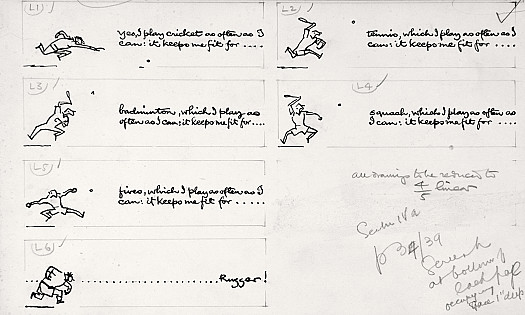 L1
yes, I play cricket as often as I
can: it keeps me fit for ....
L2
tennis, which I play as often as I
can: it keeps me fit for ....
L3
badminton, which I play as
often as I can: it keeps me fit for....
L4
squash, which I play as often as
I can: it keeps me fit for ....
L5
fives, which I play as often as I
can: it keeps me fit for .....
L6
Rugger!
all drawings to be reduced to
4/5 linear
p 34/39
at bottom of
each page
occupying
space 1" deep